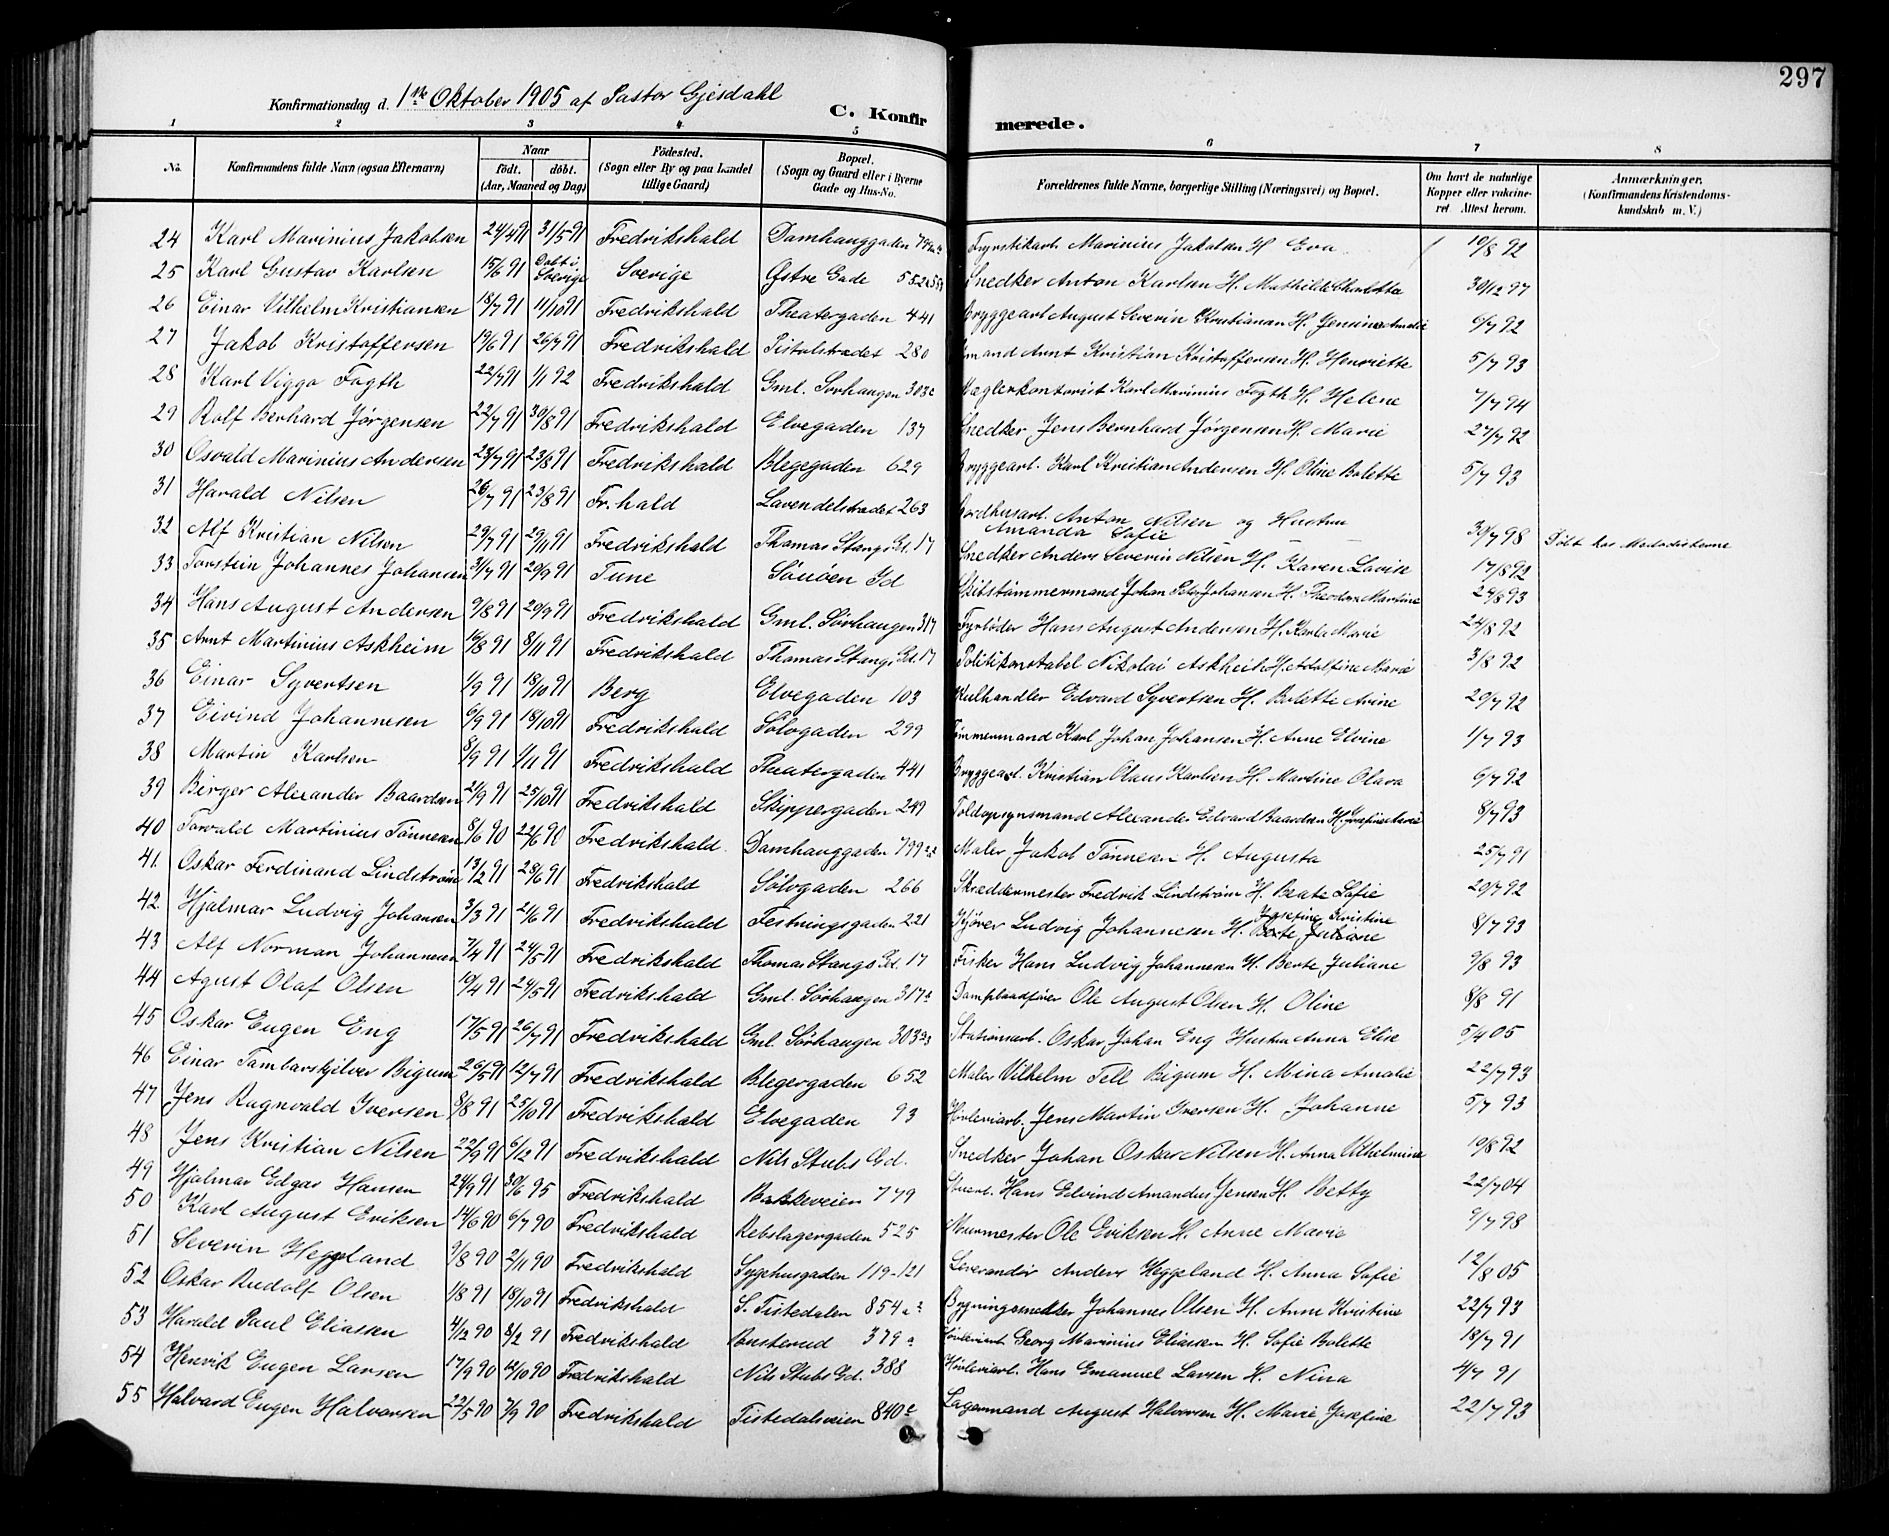 297
Konfirmationsdag d. 1ste Oktober 1905 af Pastor Gjesdahl
C. Konfirmerede.
1 2 3 4 5 6 7 8
No. Konfirmandens fulde Navn (ogsaa Efternavn) Naar født. døbt. (Aar, Maaned og Dag) Fødested. (Sogn eller By og paa Landet tillige Gaard) Bopæl. (Sogn og Gaard eller i Byerne Gade og Hus-No. Forældrenes fulde Navne, borgerlige Stilling (Næringsvei) og Bopæl. Om havt de naturlige Kopper eller vakcineret. Attest herom. Anmærkninger, (Konfirmandens Kristendomskundskab m. V.)
24 Karl Marinius Jakobsen 24/4 91 31/5 91 Fredrikshald Damhauggaden Fyrstikarb. Marinius Jakobsen H. Eva 19/8 92
25 Karl Gustav Karlsen 15/6 91 Døbt i Sverige Sverige Østre Gade Snedker Anton Karlsen H. Mathilde Charlotte 30/12 97
26 Einar Vilhelm Kristiansen 18/7 91 11/10 91 Fredrikshald Theatergaden 441 Bryggearb August Severin Kristiansen H. Jensine Amalie 6/7 92
27 Jakob Kristoffersen 19/6 91 26/7 91 Fredrikshald Pistolstrædet 280 Arnt Kristian Kristoffersen H. Henriette 5/7 93
28 Karl Viggo Fogth 22/7 91 1/1 92 Fredrikshald Gml. Sørhaugen 303c Mæglerkontorist Karl Marinius Fogth H. Helene 7/7 94
29 Rolf Berhard Jørgensen 22/7 91 30/8 91 Fredrikshald Elvegaden 137 Snedker Jens Bernhard Jørgensen H. Marie 27/7 92
30 Osvald Marinius Andersen 23/7 91 23/8 91 Fredrikshald Blegegaden 629 Bryggearb. Karl Kristian Andersen H. Oline Bolette 5/7 93
31 Harald Nilsen 26/7 91 23/8 91 Fr.hald Lavendelstrædet 263 Anton Nilsen og Hustru Amanda Sofie 30/7 98 Døbt hos Metodisterne
32 Alf Kristian Nilsen 29/7 91 29/11 91 Fredrikshald Thomas Stangs Gd. 17 Snedker Anders Severin Nilsen H. Karen Lovise 17/8 92
33 Torstein Johannes Johansen 31/7 91 20/9 91 Tune Sauøen Id Skibstømmermand Johan Peter Johansen H. Theodora Martine 24/8 93
34 Hans August Andersen 9/8 91 20/9 91 Fredrikshald Gml. Sørhaugen 317 Fyrbøder Hans August Andersen H. Karla Marie 24/8 92
35 Arnt Martinius Askheim 16/8 91 8/11 91 Fredrikshald Thomas Stangs Gd. 17 Politikonstabel Nikolai Askheim H. Adolfine Marie 3/8 92
36 Einar Syvertsen 1/9 91 18/10 91 Berg Elvegaden 103 Kulhandler Edvard Syvertsen H. Bolette Arine 20/7 92
37 Eivind Johannesen 6/9 91 18/10 91 Fredrikshald Sølvgaden 299 Tømmermand Karl Johan Johansen H. Anne Elvine 1/7 93
38 Martin Karlsen 8/9 91 1/11 91 Fredrikshald Theatergaden 441 Bryggearb. Kristian Olaus Karlsen H. Martine Olava 6/7 92
39 Birger Alexander Baardsen 21/9 91 25/10 91 Fredrikshald Skippergaden 249 Toldopsynsmand Alexander Edvard Baardsen H. Josefine Marie 8/7 93
40 Torvald Martinius Tønnesen 8/6 90 22/6 90 Fredrikshald Damhauggaden Maler Jakob Tønnesen H. Augusta 25/7 91
41. Oskar Ferdinand Lindstrøm 13/2 91 28/6 91 Fredrikshald Sølvgaden 266 Skræddermester Fredrik Lindstrøm H. Beate Sofie 20/7 92
42. Hjalmar Ludvig Johansen 3/3 91 21/6 91 Fredrikshald Festningsgaden 221 Kjører Ludvig Johannesen H. Josefine Kristine 8/7 93
43 Alf Norman Johannesen 7/4 91 24/5 91 Fredrikshald Thomas Stangs Gd. 17 Fisker Hans Ludvig Johannesen H. Berte Juliane 9/8 93
44 Agust Olaf Olsen 10/4 91 24/5 91 Fredrikshald Gml. Sørhaugen 317a Dampbaadfører Ole August Olsen H. Oline 8/8 91
45 Oskar Eugen Eng 17/5 91 26/7 91 Fredrikshald Gml. Sørhaugen Stationsarb. Oskar Johan Eng Hustru Anna Elise 5/4 05
46 Einar Tambarskjelver Bigum 26/5 91 12/7 91 Fredrikshald Blegergaden 652 Maler Vilhelm Tell Bigum H. Mina Amalie 22/7 93
47 Jens Ragnvald Iversen 8/8 91 25/10 91 Fredrikshald Elvegaden 93 Høvleriarb. Jens Martin Iversen H. Johanne 5/7 93
48 Jens Kristian Nilsen 22/9 91 6/12 91 Fredrikshald Nils Stubs Gd. Snedker Johan Oskar Nilsen H. Anna Vilhelmine 19/8 92
49 Hjalmar Edgar Hansen 24/9 91 30/6 95 Fredrikshald Bakkeveien 779 Hans Edvind Amandus Jensen H. Betty 22/7 04
50 Karl August Eriksen 14/6 90 6/7 90 Fredrikshald Rebslagergaden 525 Murmester Ole Eriksen H. Anne Marie 9/7 98
51 Severin Heggeland 9/8 90 2/11 90 Fredrikshald Sygehusgaden 119-121 Leverandør Anders Heggeland H. Anna Sofie 12/8 05
52 Oskar Rudolf Olsen 1/8 91 18/10 91 Fredrikshald S. Tistedalen 854a Johannes Olsen H. Anne Kristine 22/7 93
53 Harald Paul Eliassen 4/12 90 8/2 91 Fredrikshald 379a Høvleriarb Georg Marinius Eliassen H. Sofie Bolette 18/7 91
54 Henrik Eugen Larsen 17/9 90 12/10 90 Fredrikshald Nils Stubs Gd. 388 Høvleriarb. Hans Emanuel Larsen H. Nina 4/7 91
55 Halvard Eugen Halvorsen 22/5 90 7/9 90 Fredrikshald Tistedalsveien 840c Lagermand August Halvorsen H. Marie Josefine 22/7 93